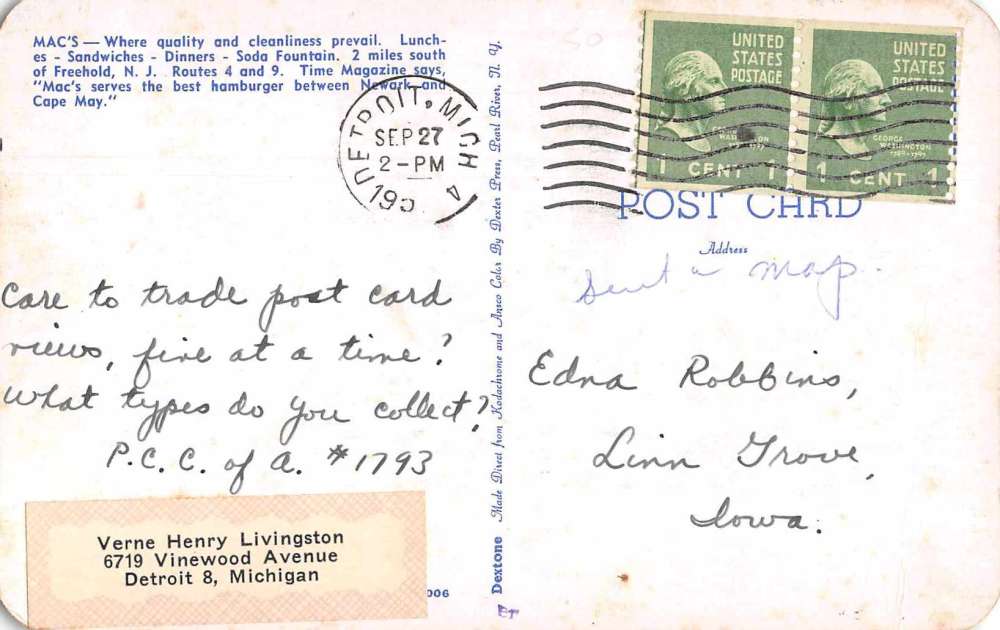 MAC'S — Where quality and cleanliness prevail. Lunch-
es - Sandwiches - Dinners - Soda Fountain. 2 miles south
of Freehold, N. J. Routes 4 and 9. Time Magazine says,
"Mac's serves the best hamburger between Newark and
Cape May."
DETROIT, MICH
SEP 27
2-PM
UNITED
STATES
POSTAGE
GEORGE
WASHINGTON
1 CENT 1
UNITED
STATES
POSTAGE
GEORGE
WASHINGTON
1789-1797
1 CENT 1
POST CARD
Address
Sent a map.
Care to trade post card
views, five at a time?
What types do you collect?
P.C.C. of A. #1793
Verne Henry Livingston
6719 Vinewood Avenue
Detroit 8, Michigan
006
Dextone Made Direct from Kodachrome and Ansco Color By Dexter Press, Pearl River, N. Y.
Edna Robbins,
Linn Grove,
Iowa.